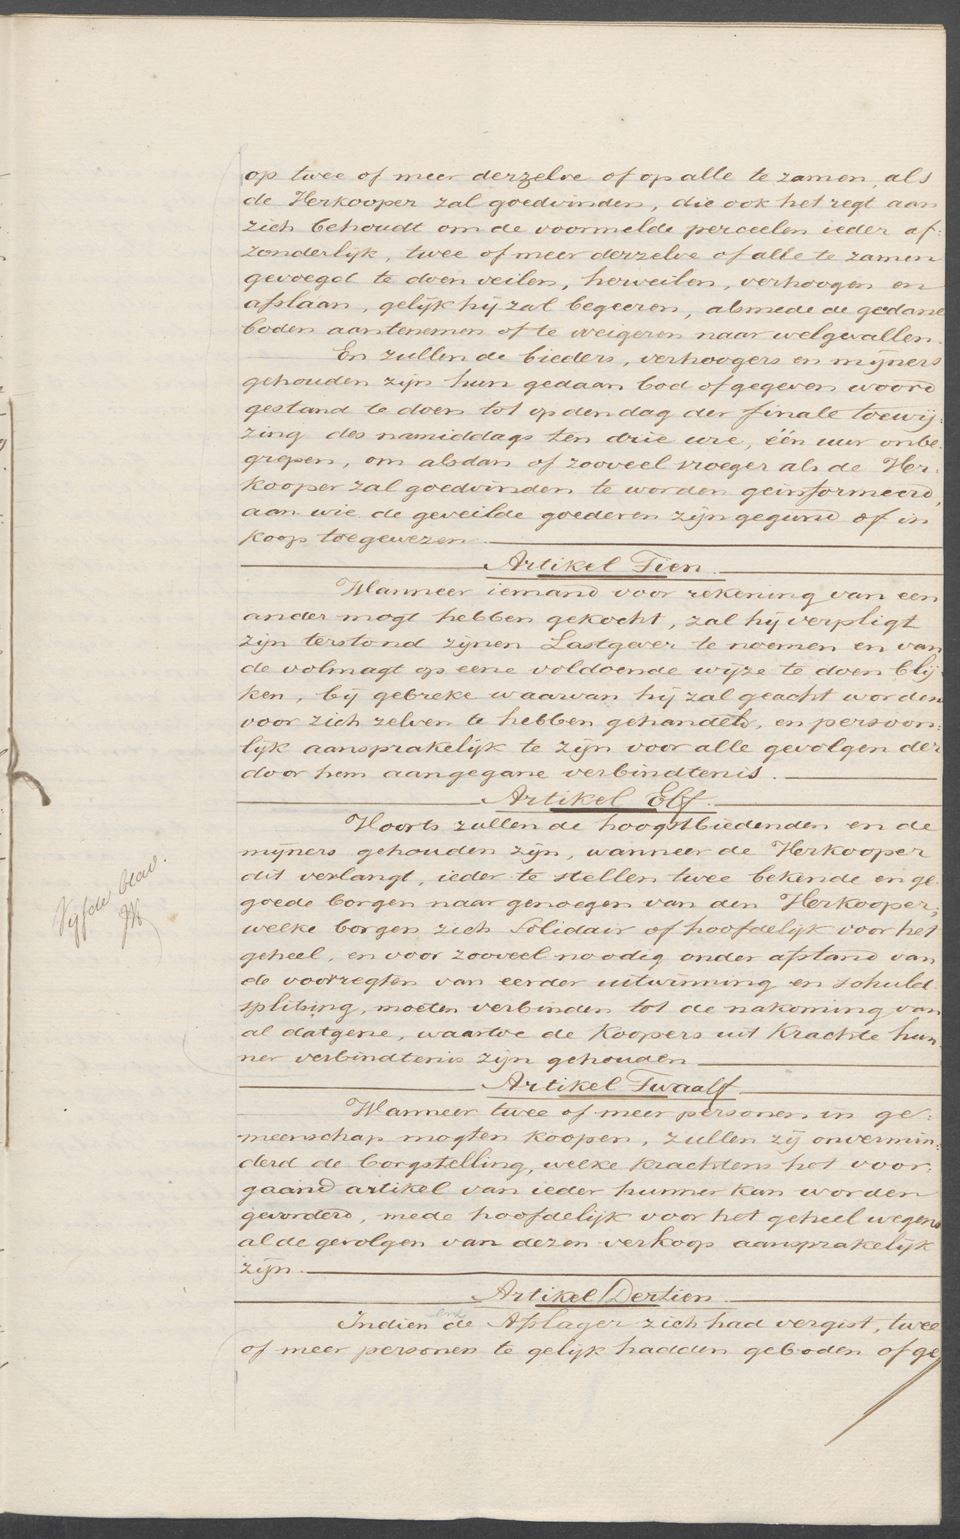 op twee of meer derzelve of op alle te zamen, als
de Verkooper zal goedvinden, die ook het regt aan
zich behoudt om de voormelde perceelen ieder af:
zonderlijk, twee of meer derzelve of alle te zamen
gevoegd te doen veilen, herveilen, verhoogen en
afslaan, gelijk hij zal begeeren, alsmede de gedane
boden aantenemen of te weigeren naar welgevallen.
En zullen de bieders, verhoogers en mijners
gehouden zijn hun gedaan bod of gegeven woord
gestand te doen tot op den dag der finale toewij:
zing des namiddags ten drie ure, één uur onbe:
grepen, om alsdan of zooveel vroeger als de Ver:
kooper zal goedvinden te worden geïnformeerd,
aan wie de geveilde goederen zijn gegund of in
koop toegewezen
Artikel Tien.
Wanneer iemand voor rekening van een
ander mogt hebben gekocht, zal hij verpligt
zijn terstond zijnen Lastgever te noemen en van
de volmagt op eene voldoende wijze te doen blij
ken, bij gebreke waarvan hij zal geacht worden
voor zich zelven te hebben gehandeld, en persoon:
lijk aansprakelijk te zijn voor alle gevolgen der
door hem aangegane verbindtenis.
Artikel Elf.
Voorts zullen de hoogstbiedenden en de
mijners gehouden zijn, wanneer de Verkooper
dit verlangt, ieder te stellen twee bekende en ge:
goede borgen naar genoegen van den Verkooper;
welke borgen zich Solidair of hoofdelijk voor het
geheel, en voor zooveel noodig onder afstand van
de voorregten van eerder uitwinning en schuld
splitsing, moeten verbinden tot de nakoming van
al datgene, waartoe de Koopers uit krachte hun
ner verbindtenis zijn gehouden
Artikel Twaalf
Wanneer twee of meer personen in ge:
meenschap mogten koopen, zullen zij onvermin:
derd de borgstelling, welke krachtens het voor:
gaand artikel van ieder hunner kan worden
gevorderd, mede hoofdelijk voor het geheel wegens
al de gevolgen van dezen verkoop aansprakelijk
zijn.
Artikel Dertien
Indien de Afslager zich had vergist, twee
of meer personen te gelijk hadden geboden of ge
Vijfde blad.